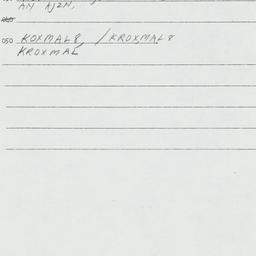 AM AJZN,
050 KOXMAL8, /KROXMAL8
KROXMAL